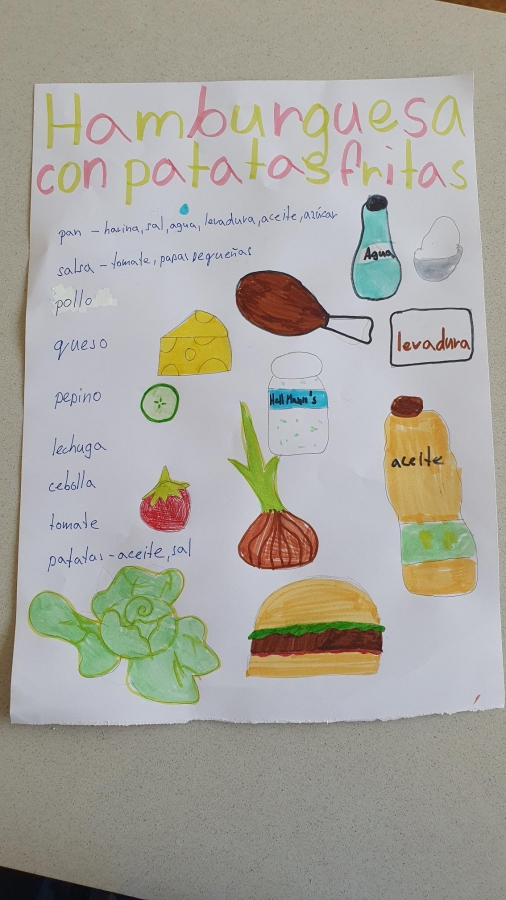 Hamburguesa
con patatas fritas
pan - harina, sal, agua, levadura, aceite, azúcar
salsa - tomate, papas pequeñas
pollo
queso
pepino
lechuga
cebolla
tomate
patatas - aceite, sal
Agua
levadura
Hall Mann's
aceite